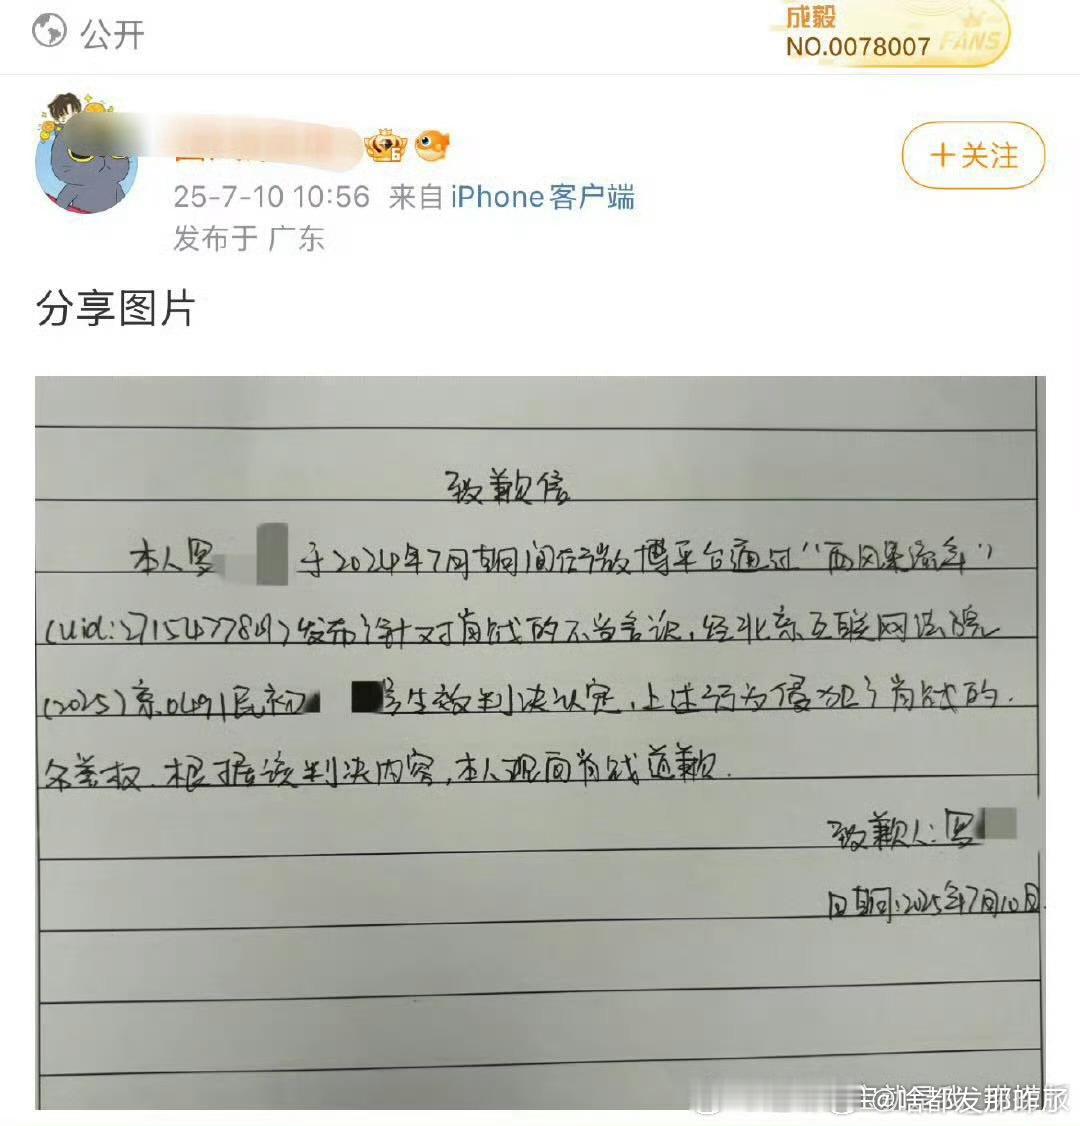 公开
成毅
NO.0078007 FANS
6
+关注
25-7-10 10:56 来自 iPhone客户端
发布于 广东
分享图片
致歉信
本人罗 于2024年7月期间在微博平台通过“西风渠流年”
(uid:2715477849)发布了针对肖战的不当言论,经北京互联网法院
(2025)京0491民初 号生效判决认定,上述行为侵犯了肖战的
名誉权.根据该判决内容,本人现向肖战道歉.
致歉人:罗
日期:2025年7月10日.
@啥都发那旅